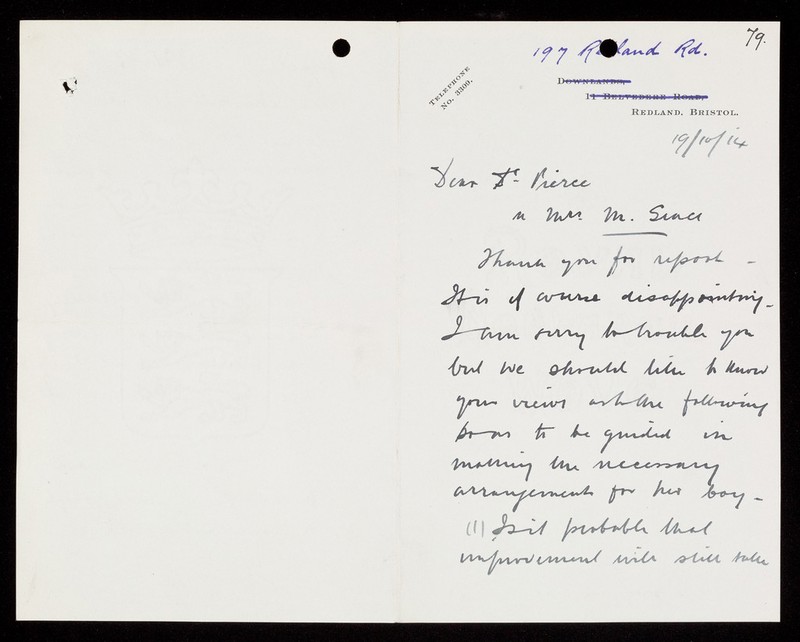 79.
197 Redland Rd.
TELEPHONE
No. 3309.
DOWNLANDS,
11 BELVEDERE ROAD,
REDLAND, BRISTOL.
19/10/14
Dear Dr. Pierce
Mrs. M.
Thank you for report -
It is of course disappointing -
I am sorry to trouble you
but we should like to know
your views as to the following
so as to be guided in
making the necessary
arrangements for her boy -
(1) Is it probable that
improvement will still take